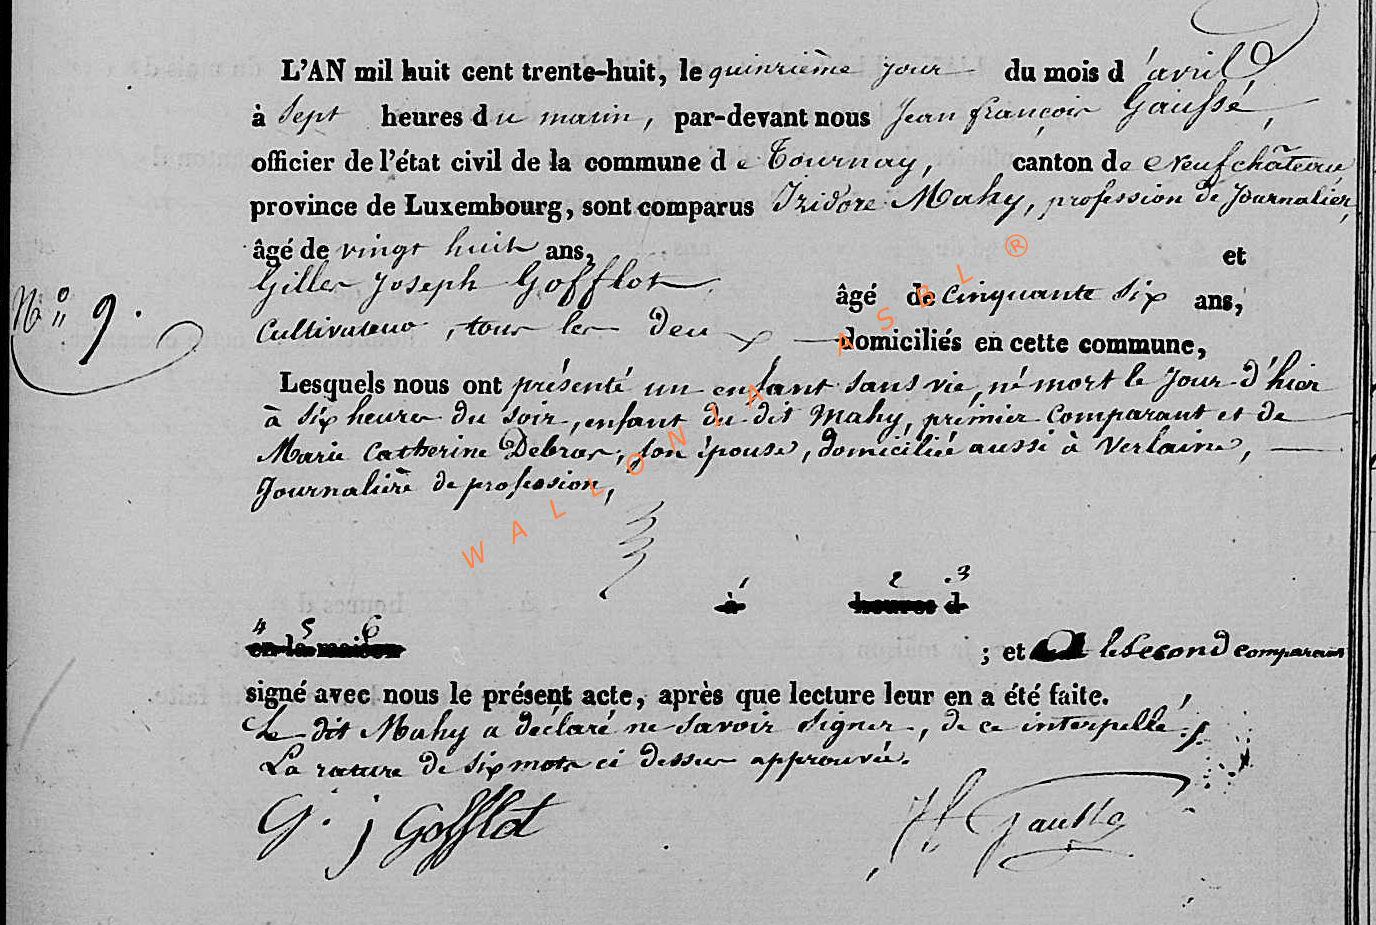 L'AN mil huit cent trente-huit, le quinzième jour du mois d'avril
à sept heures du matin, par-devant nous Jean françois Gaussé,
officier de l'état civil de la commune de Tournay, canton de Neufchâteau
province de Luxembourg, sont comparus Izidore Mahy, profession de Journalier,
âgé de vingt huit ans, et
Gilles Joseph Gofflot âgé de cinquante six ans,
N.o 9.
Cultivateur, tous les deux domiciliés en cette commune,
Lesquels nous ont présenté un enfant sans vie, né mort le Jour d'hier
à six heures du soir, enfant du dit Mahy, prémier comparant et de
Marie Catherine Debras, son épouse, domiciliée aussi à Verlaine,
Journalière de profession,
1 2 3
à heures d
4 5 6
en la maison ; et le second comparant
signé avec nous le présent acte, après que lecture leur en a été faite.
Le dit Mahy a déclaré ne savoir signer, de ce interpellé.
La rature de six mots ci dessus approuvée.
G. j Gofflot Gaussé
WALLONIA ASBL ®